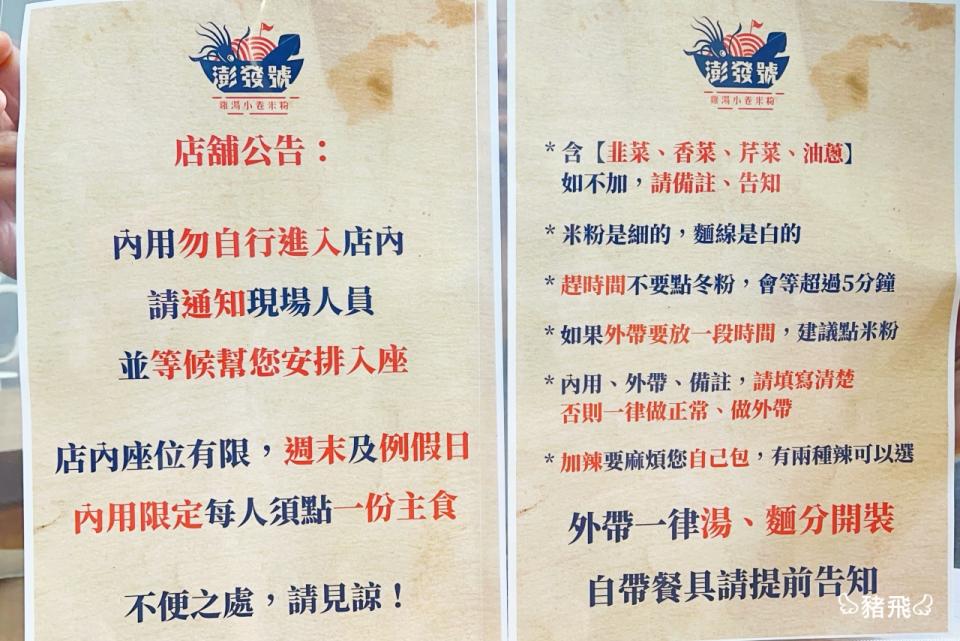 澎發號
雞湯小卷米粉
店舖公告：
內用勿自行進入店內
請通知現場人員
並等候幫您安排入座
店內座位有限，週末及例假日
內用限定每人須點一份主食
不便之處，請見諒！
澎發號
雞湯小卷米粉
*含【韭菜、香菜、芹菜、油蔥】
如不加，請備註、告知
*米粉是細的，麵線是白的
*趕時間不要點冬粉，會等超過5分鐘
*如果外帶要放一段時間，建議點米粉
*內用、外帶、備註，請填寫清楚
否則一律做正常、做外帶
*加辣要麻煩您自己包，有兩種辣可以選
外帶一律湯、麵分開裝
自帶餐具請提前告知
豬飛